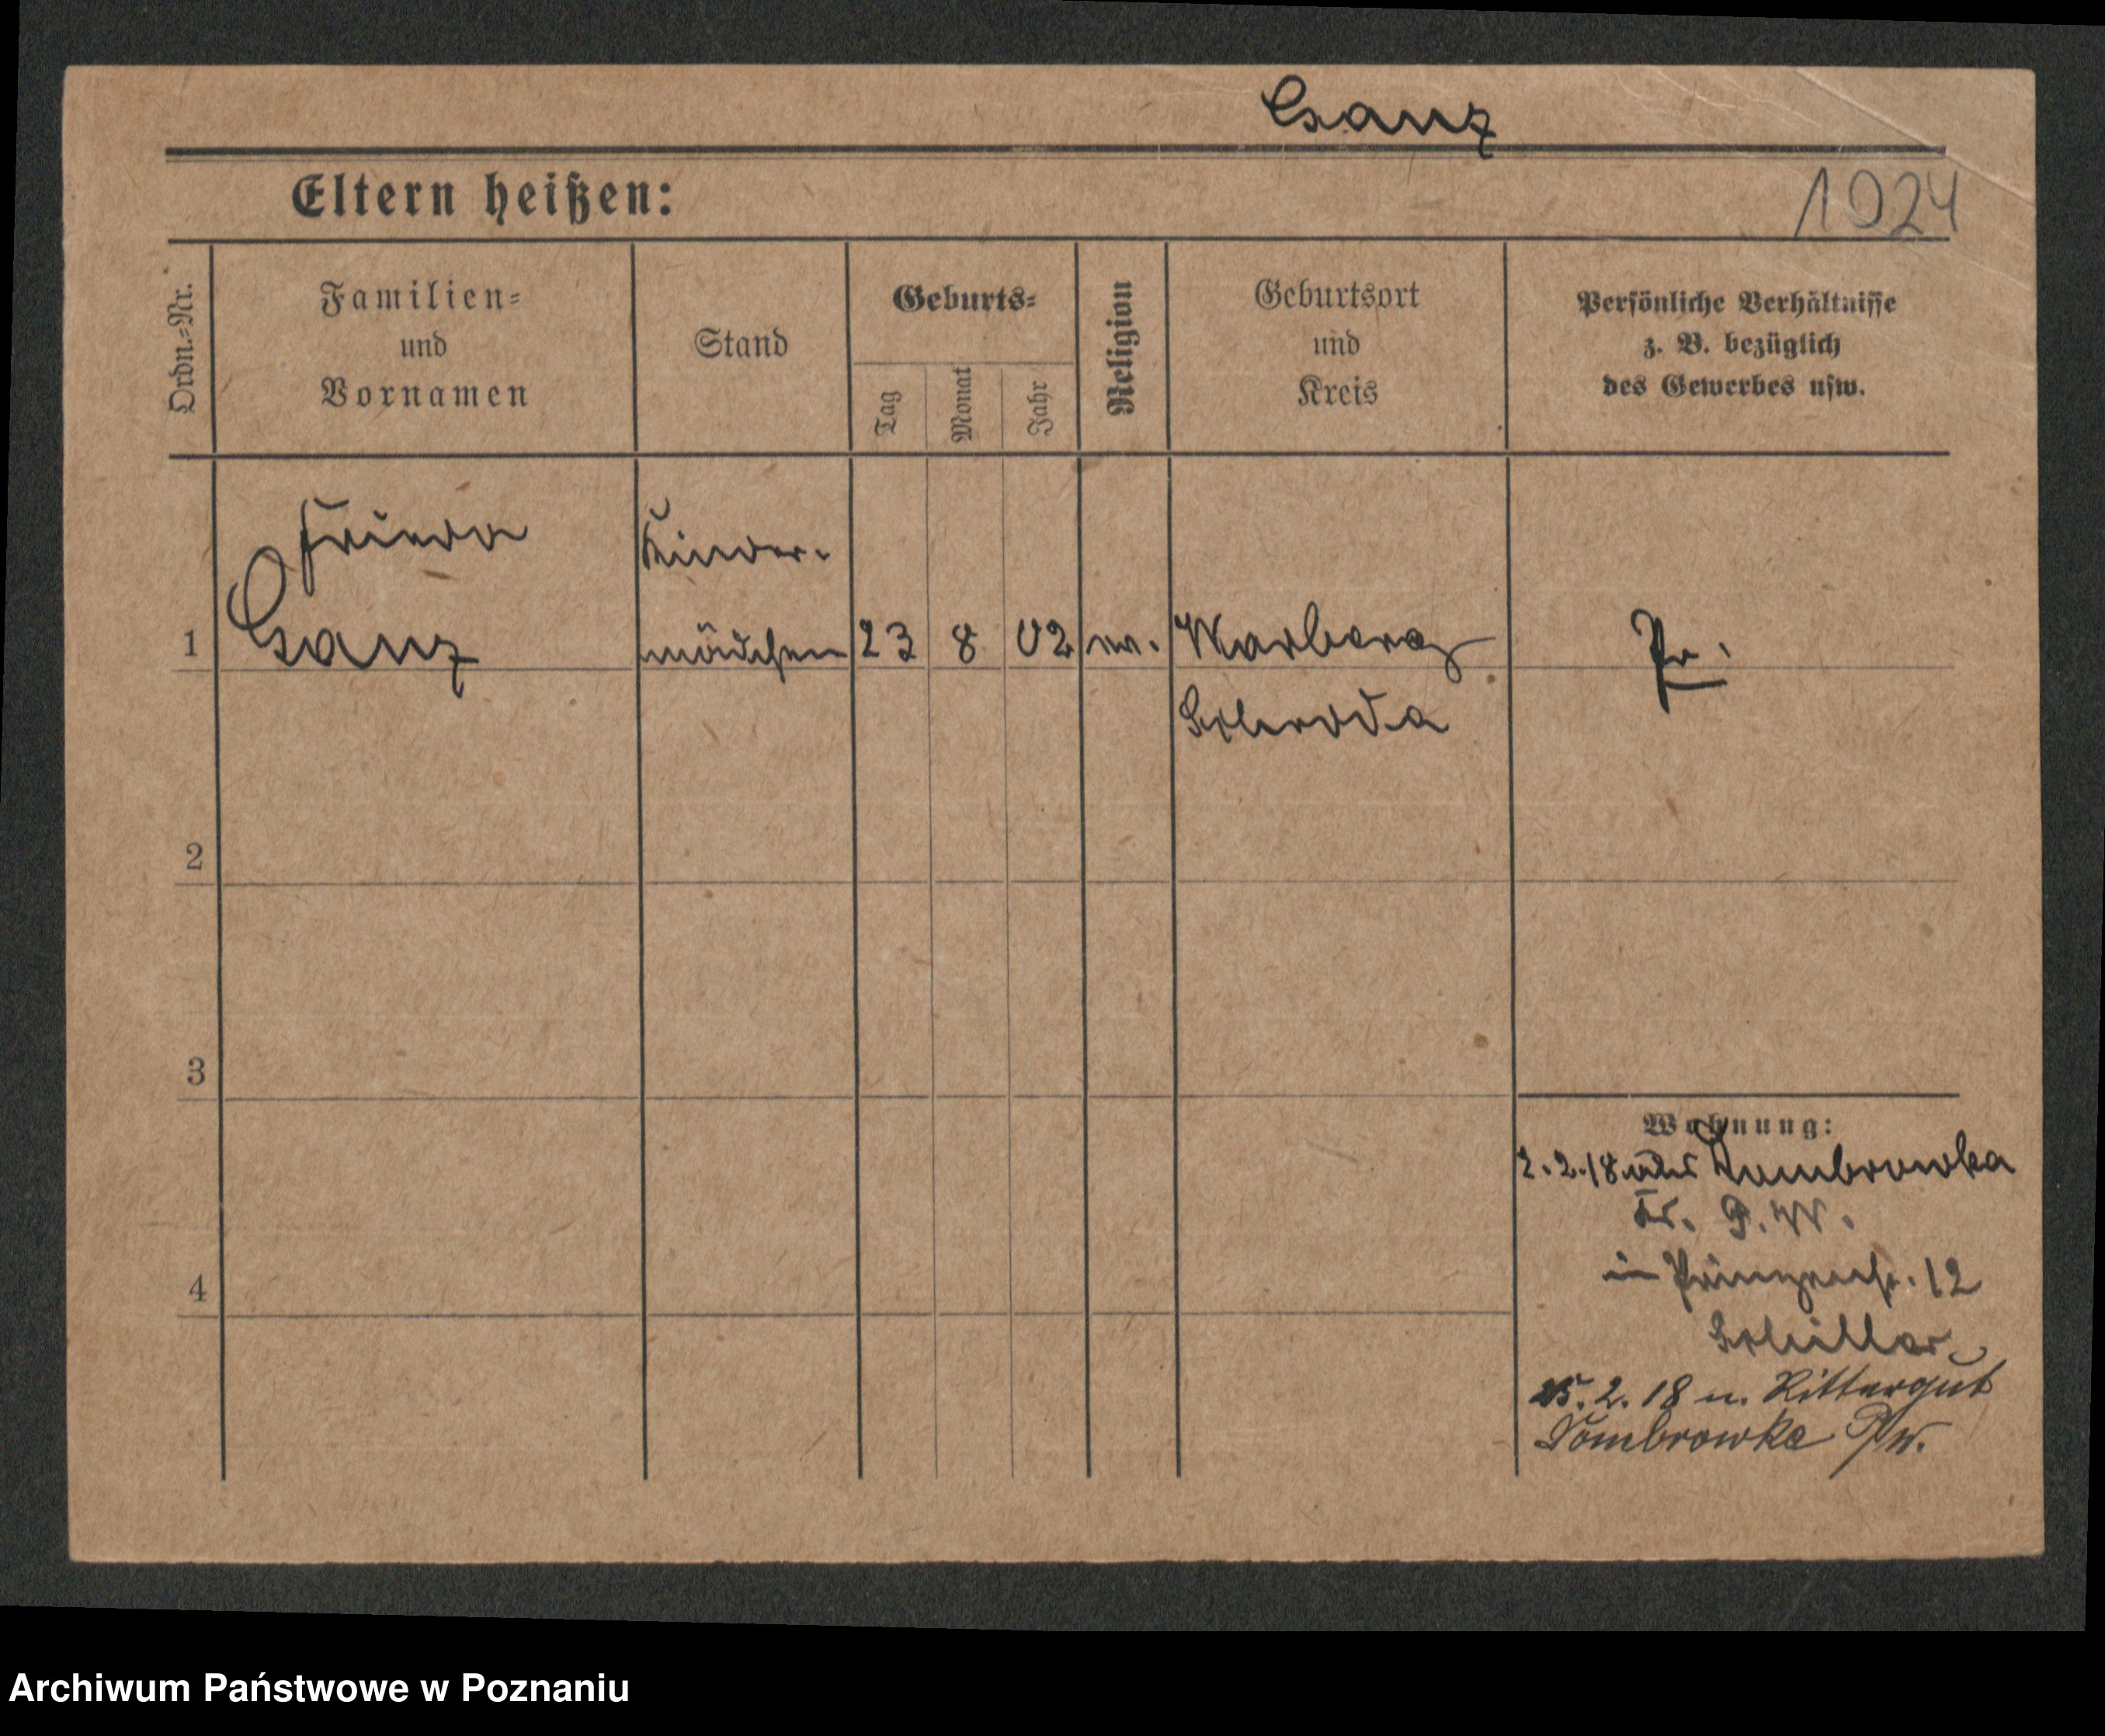 Ganz
Eltern heißen:
1924
Ordn.=Nr.
Familien=
und
Vornamen
Stand
Geburts=
Tag
Monat
Jahr
Religion
Geburtsort
und
Kreis
Persönliche Verhältnisse
z. B. bezüglich
des Gewerbes usw.
Frieda
Ganz
Kinder-
mädchen
1
23 8 02
Warberg
Schroda
Pr.
2
3
4
Wohnung:
2.2.18 Dombrowka
Kr. P. W.
in Prinzenstr. 12
Schiller
25.2.18 n. Rittergut
Dombrowka P/w.
Archiwum Państwowe w Poznaniu